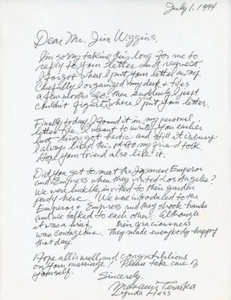 July 1, 1994
Dear Mr. Jim Wiggins,
I'm sorry taking this long for me to
reply to your letter and request.
I forgot where I put your letter away
carefully. I organized my desk &
files
and then suddenly I just
couldn't figure where I put your letter.
Finally today I found it in my personal
letter file. I meant to write you earlier
but
I always liked this photo my friend took.
Hope your friend also like it.
Did you get to meet the Japanese Emperor
and Empress when they visited Los Angeles?
We were luckily invited to their garden
party here. We were introduced to the
Emperor & Empress and they shook hands
and we talked to each other. Although
it was brief, their graciousness
was contagious. They made everybody happy
that day.
Hope all is well and congratulations
on your marriage. Please take care of
yourself.
Sincerely,